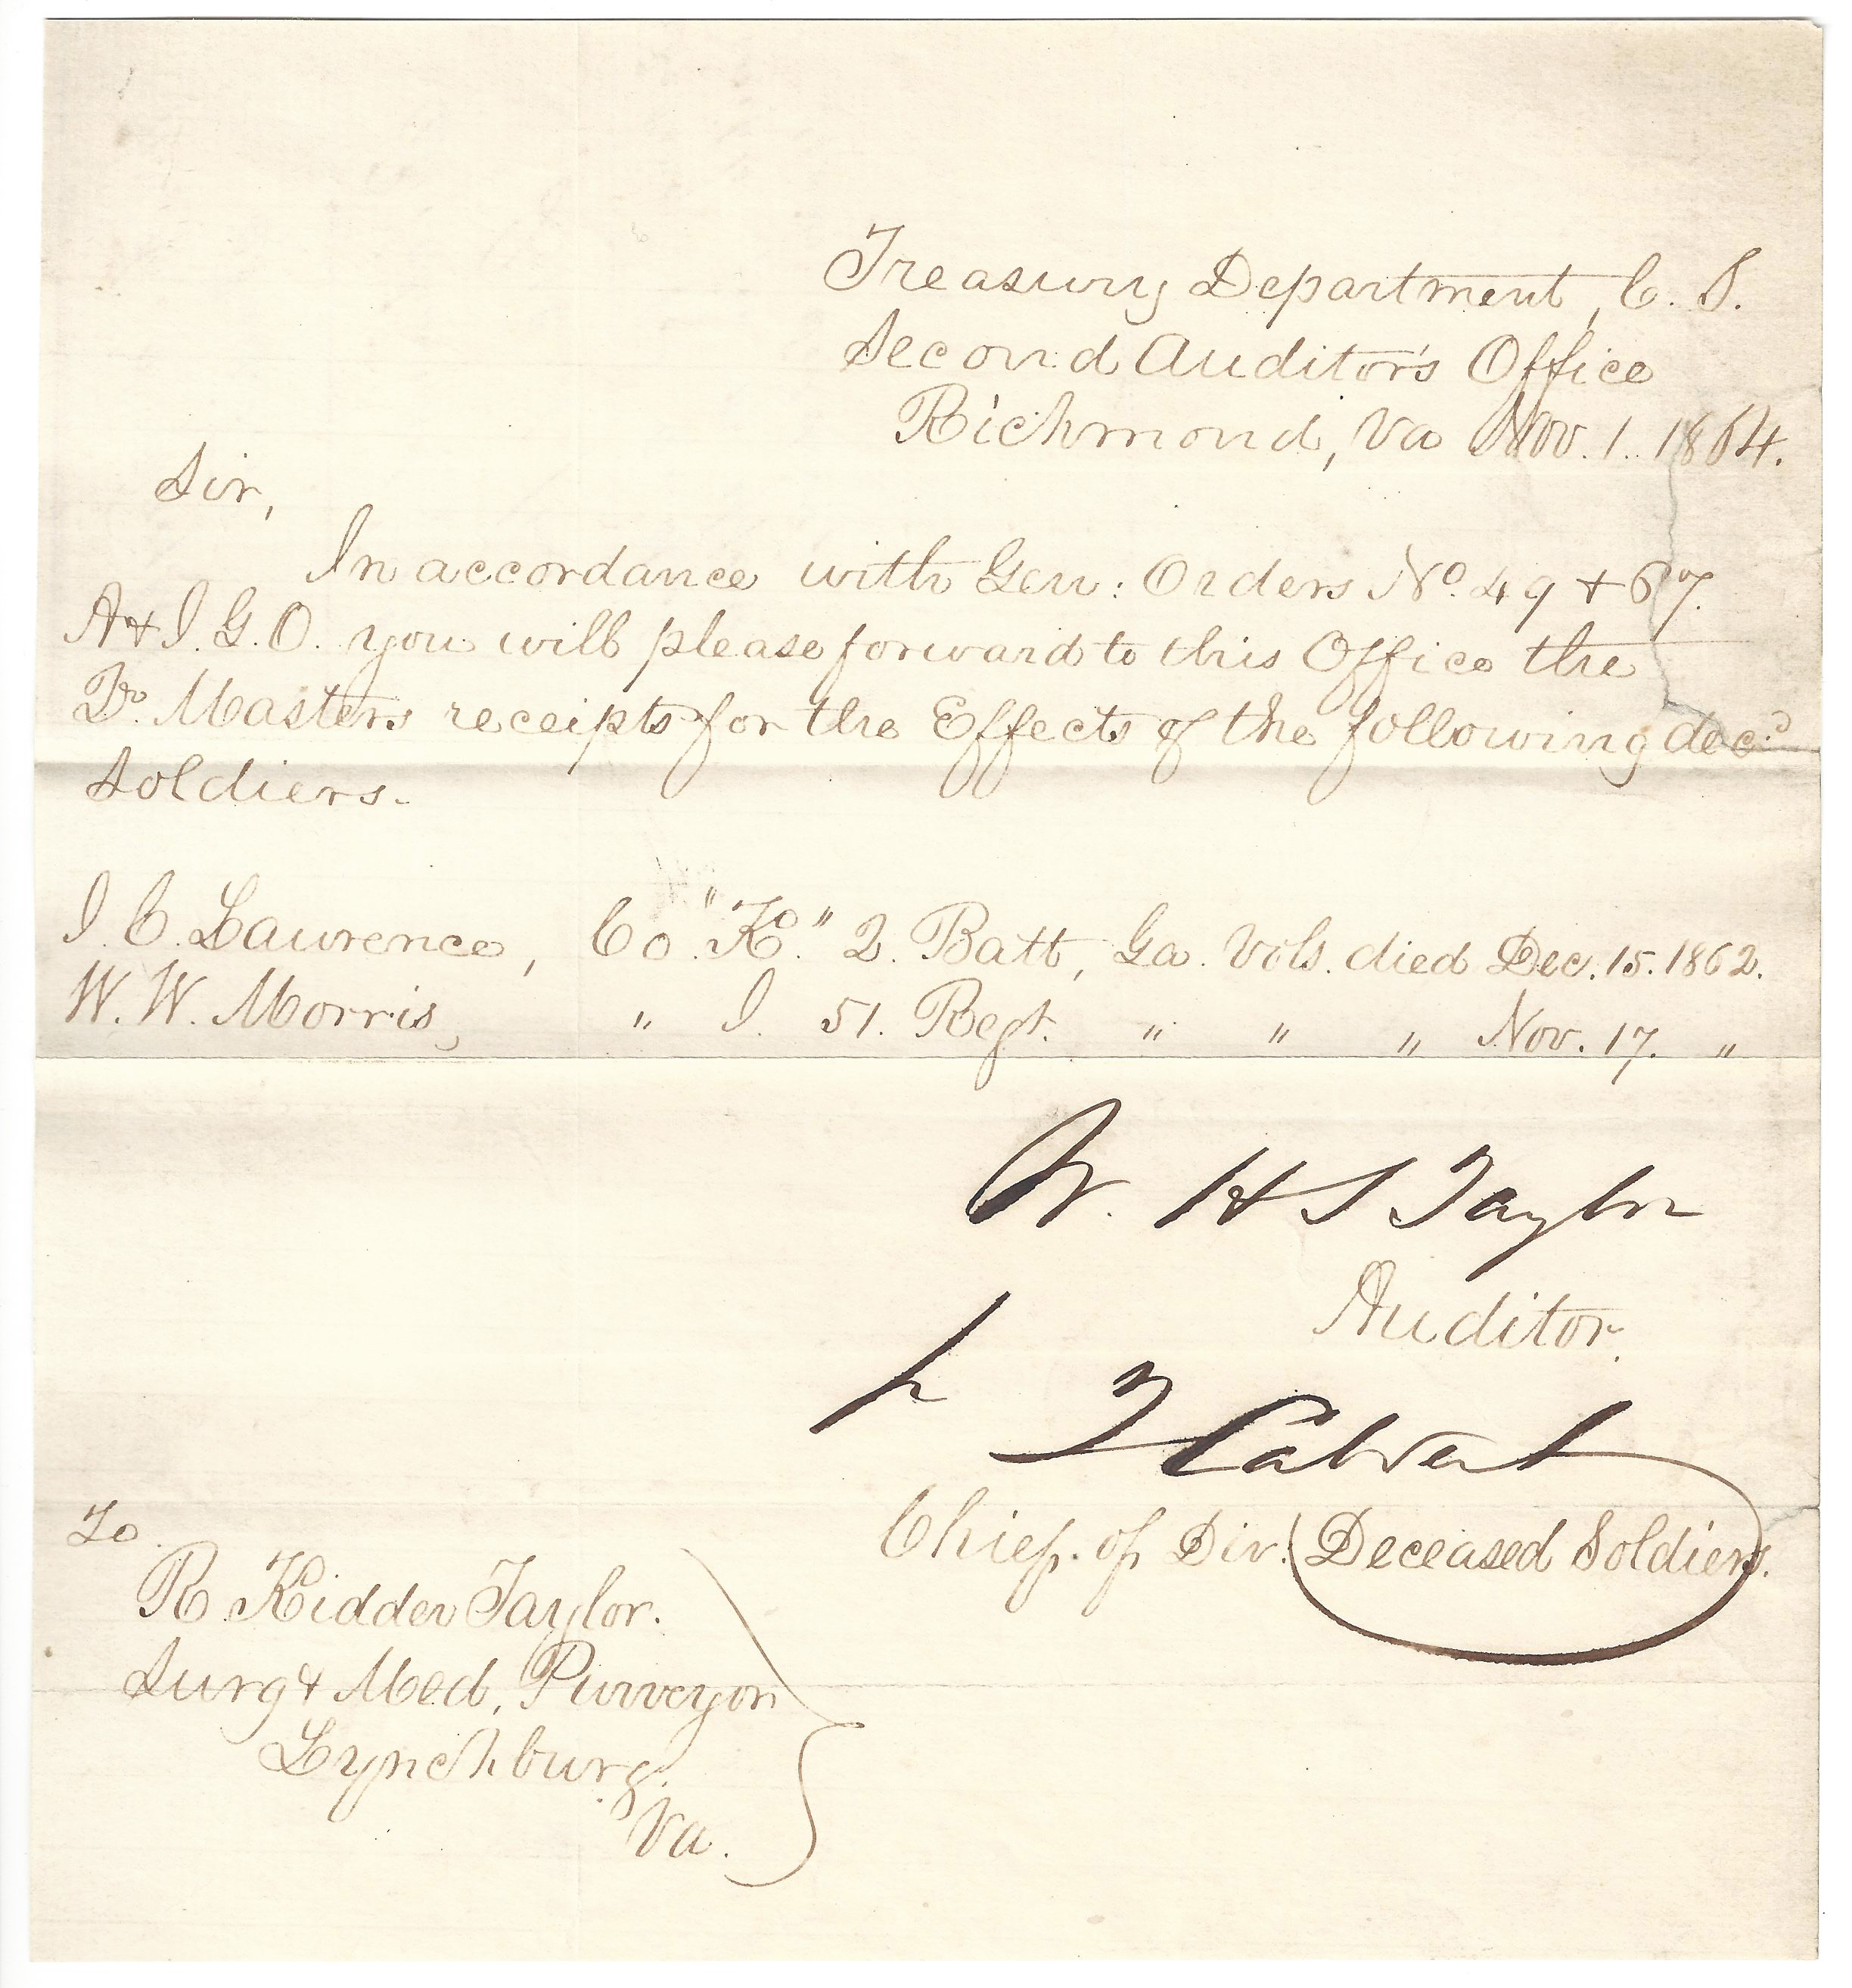 Treasury Department, C. S.
Second Auditor's Office
Richmond, Va Nov. 1. 1864.
Sir,
In accordance with Gen: Orders No. 49 + 67.
A + I. G. O. you will please forward to this Office the
Qr. Masters receipts for the Effects of the following decd
soldiers.
J. C. Lawrence, Co. "K." 2. Batt, Ga. Vols. died Dec. 15. 1862.
W. W. Morris, " I. 51. Regt. " " " Nov. 17. "
W. H S Taylor
Auditor.
pr T Calvert
Chief. of Div. (Deceased Soldiers.
To
R. Kidder Taylor.
Surg + Med. Purveyor
Lynchburg.
Va.